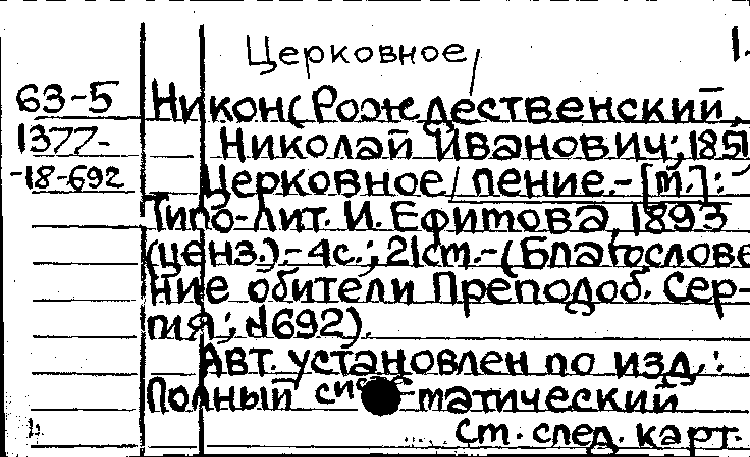 Церковное/ 1.
63-5 Никон (Рождественский,
1377- Николай Иванович; 1851
-18-692 Церковное/ пение.-[М.]:
Типо-лит. И. Ефимова, 1893
(ценз.).- 4с.; 21см.-(Благослове
ние обители Преподоб. Сер-
гия; №692).
Авт. установлен по изд.:
Полный систематический
См. след. карт.